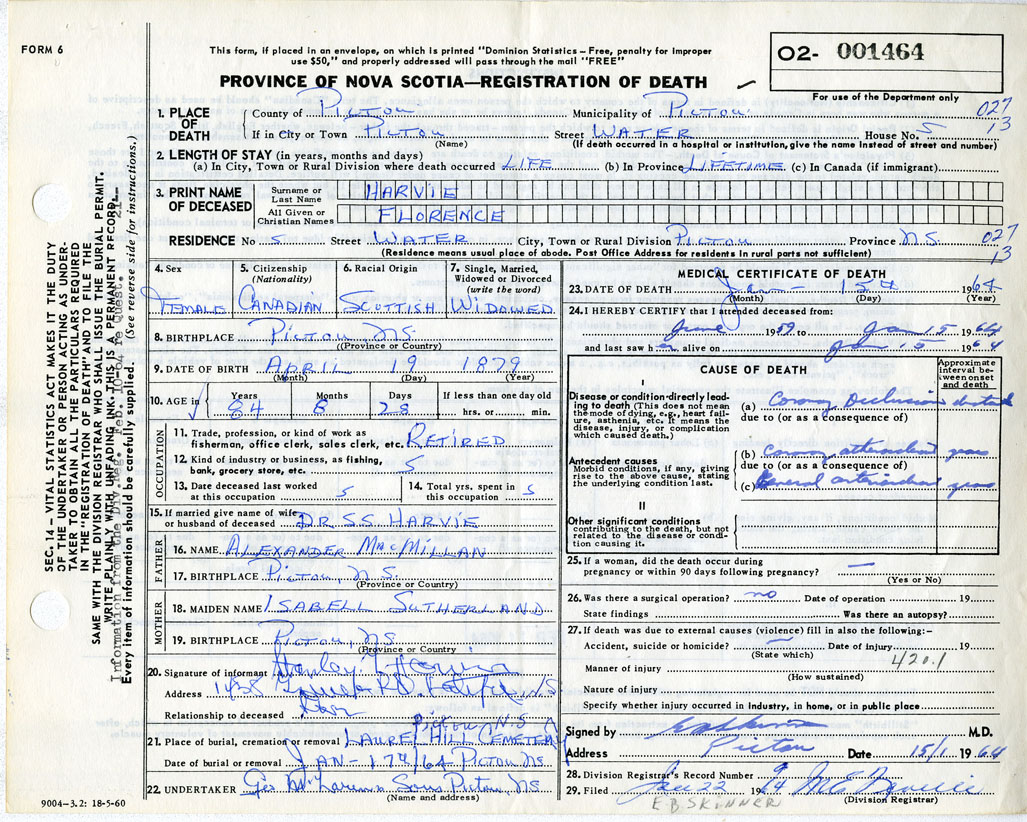 FORM 6
This form, if placed in an envelope, on which is printed "Dominion Statistics – Free, penalty for improper
use $50," and properly addressed will pass through the mail "FREE"
O2- 001464
For use of the Department only
PROVINCE OF NOVA SCOTIA—REGISTRATION OF DEATH
1. PLACE OF DEATH
County of Pictou Municipality of Pictou 027
If in City or Town Pictou Street WATER House No. 5 13
(Name) (If death occurred in a hospital or institution, give the name instead of street and number)
2. LENGTH OF STAY (in years, months and days)
(a) In City, Town or Rural Division where death occurred LIFE (b) In Province LIFETIME (c) In Canada (if immigrant)
3. PRINT NAME OF DECEASED
Surname or Last Name HARVIE
All Given or Christian Names FLORENCE
RESIDENCE No 5 Street WATER City, Town or Rural Division PICTOU Province N.S. 027
(Residence means usual place of abode. Post Office Address for residents in rural parts not sufficient) 13
4. Sex
FEMALE
5. Citizenship
(Nationality)
CANADIAN
6. Racial Origin
SCOTTISH
7. Single, Married,
Widowed or Divorced
(write the word)
WIDOWED
8. BIRTHPLACE PICTOU N.S.
(Province or Country)
9. DATE OF BIRTH APRIL 19 1879
(Month) (Day) (Year)
10. AGE in Years Months Days If less than one day old
84 8 28 hrs. or min.
OCCUPATION
11. Trade, profession, or kind of work as
fisherman, office clerk, sales clerk, etc. RETIRED
12. Kind of industry or business, as fishing,
bank, grocery store, etc.
13. Date deceased last worked
at this occupation
14. Total yrs. spent in
this occupation
15. If married give name of wife
or husband of deceased DR S.S. HARVIE
FATHER
16. NAME ALEXANDER MACMILLAN
17. BIRTHPLACE PICTOU, N.S.
(Province or Country)
MOTHER
18. MAIDEN NAME ISABELL SUTHERLAND
19. BIRTHPLACE PICTOU, NS
(Province or Country)
20. Signature of informant Stanley
Address N.S.
Relationship to deceased
PICTOU N.S
21. Place of burial, cremation or removal LAUREL HILL CEMETERY
Date of burial or removal JAN-17th/64 PICTOU NS
22. UNDERTAKER Geo Sons Pictou, NS
(Name and address)
9004–3.2: 18-5-60
MEDICAL CERTIFICATE OF DEATH
23. DATE OF DEATH Jan 15th 1964
(Month) (Day) (Year)
24. I HEREBY CERTIFY that I attended deceased from:
June 1959 to Jan 15 1964
and last saw her alive on Jan 15 1964
CAUSE OF DEATH
Approximate
interval between onset
and death
I
Disease or condition directly leading
to death (This does not mean
the mode of dying, e.g., heart failure,
asthenia, etc. It means the
disease, injury, or complication
which caused death.)
(a) Coronary Occlusion
due to (or as a consequence of)
Antecedent causes
Morbid conditions, if any, giving
rise to the above cause, stating
the underlying condition last.
(b) Coronary years
due to (or as a consequence of)
(c) General years
II
Other significant conditions
contributing to the death, but not
related to the disease or condition
causing it.
25. If a woman, did the death occur during
pregnancy or within 90 days following pregnancy? —
(Yes or No)
26. Was there a surgical operation? no Date of operation 19
State findings Was there an autopsy?
27. If death was due to external causes (violence) fill in also the following:–
Accident, suicide or homicide? — Date of injury 19
(State which) 420.1
Manner of injury
(How sustained)
Nature of injury
Specify whether injury occurred in industry, in home, or in public place
Signed by M.D.
Address Pictou Date 15/1 1964
28. Division Registrar's Record Number 9
29. Filed Jan 22 1964
E B SKINNER (Division Registrar)
SEC. 14 – VITAL STATISTICS ACT MAKES IT THE DUTY
OF THE UNDERTAKER OR PERSON ACTING AS UNDERTAKER
TO OBTAIN ALL THE PARTICULARS REQUIRED
IN THE "REGISTRATION OF DEATH" AND TO FILE THE
SAME WITH THE DIVISION REGISTRAR WHO SHALL ISSUE THE BURIAL PERMIT.
WRITE PLAINLY WITH UNFADING INK. THIS IS A PERMANENT RECORD.
Information from the Div. Reg. Feb. 10-64 re Quest. 21
Every item of information should be carefully supplied. (See reverse side for instructions.)